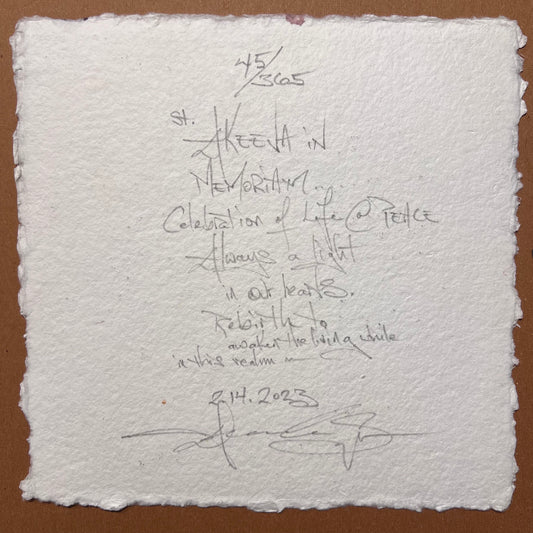 45/365
St.
AKEEVA iN
MEMORiAM...
Celebration of Life @ PEACE
Always a light
in our hearts.
Rebirth to
awaken the living while
in this realm
2.14.2023